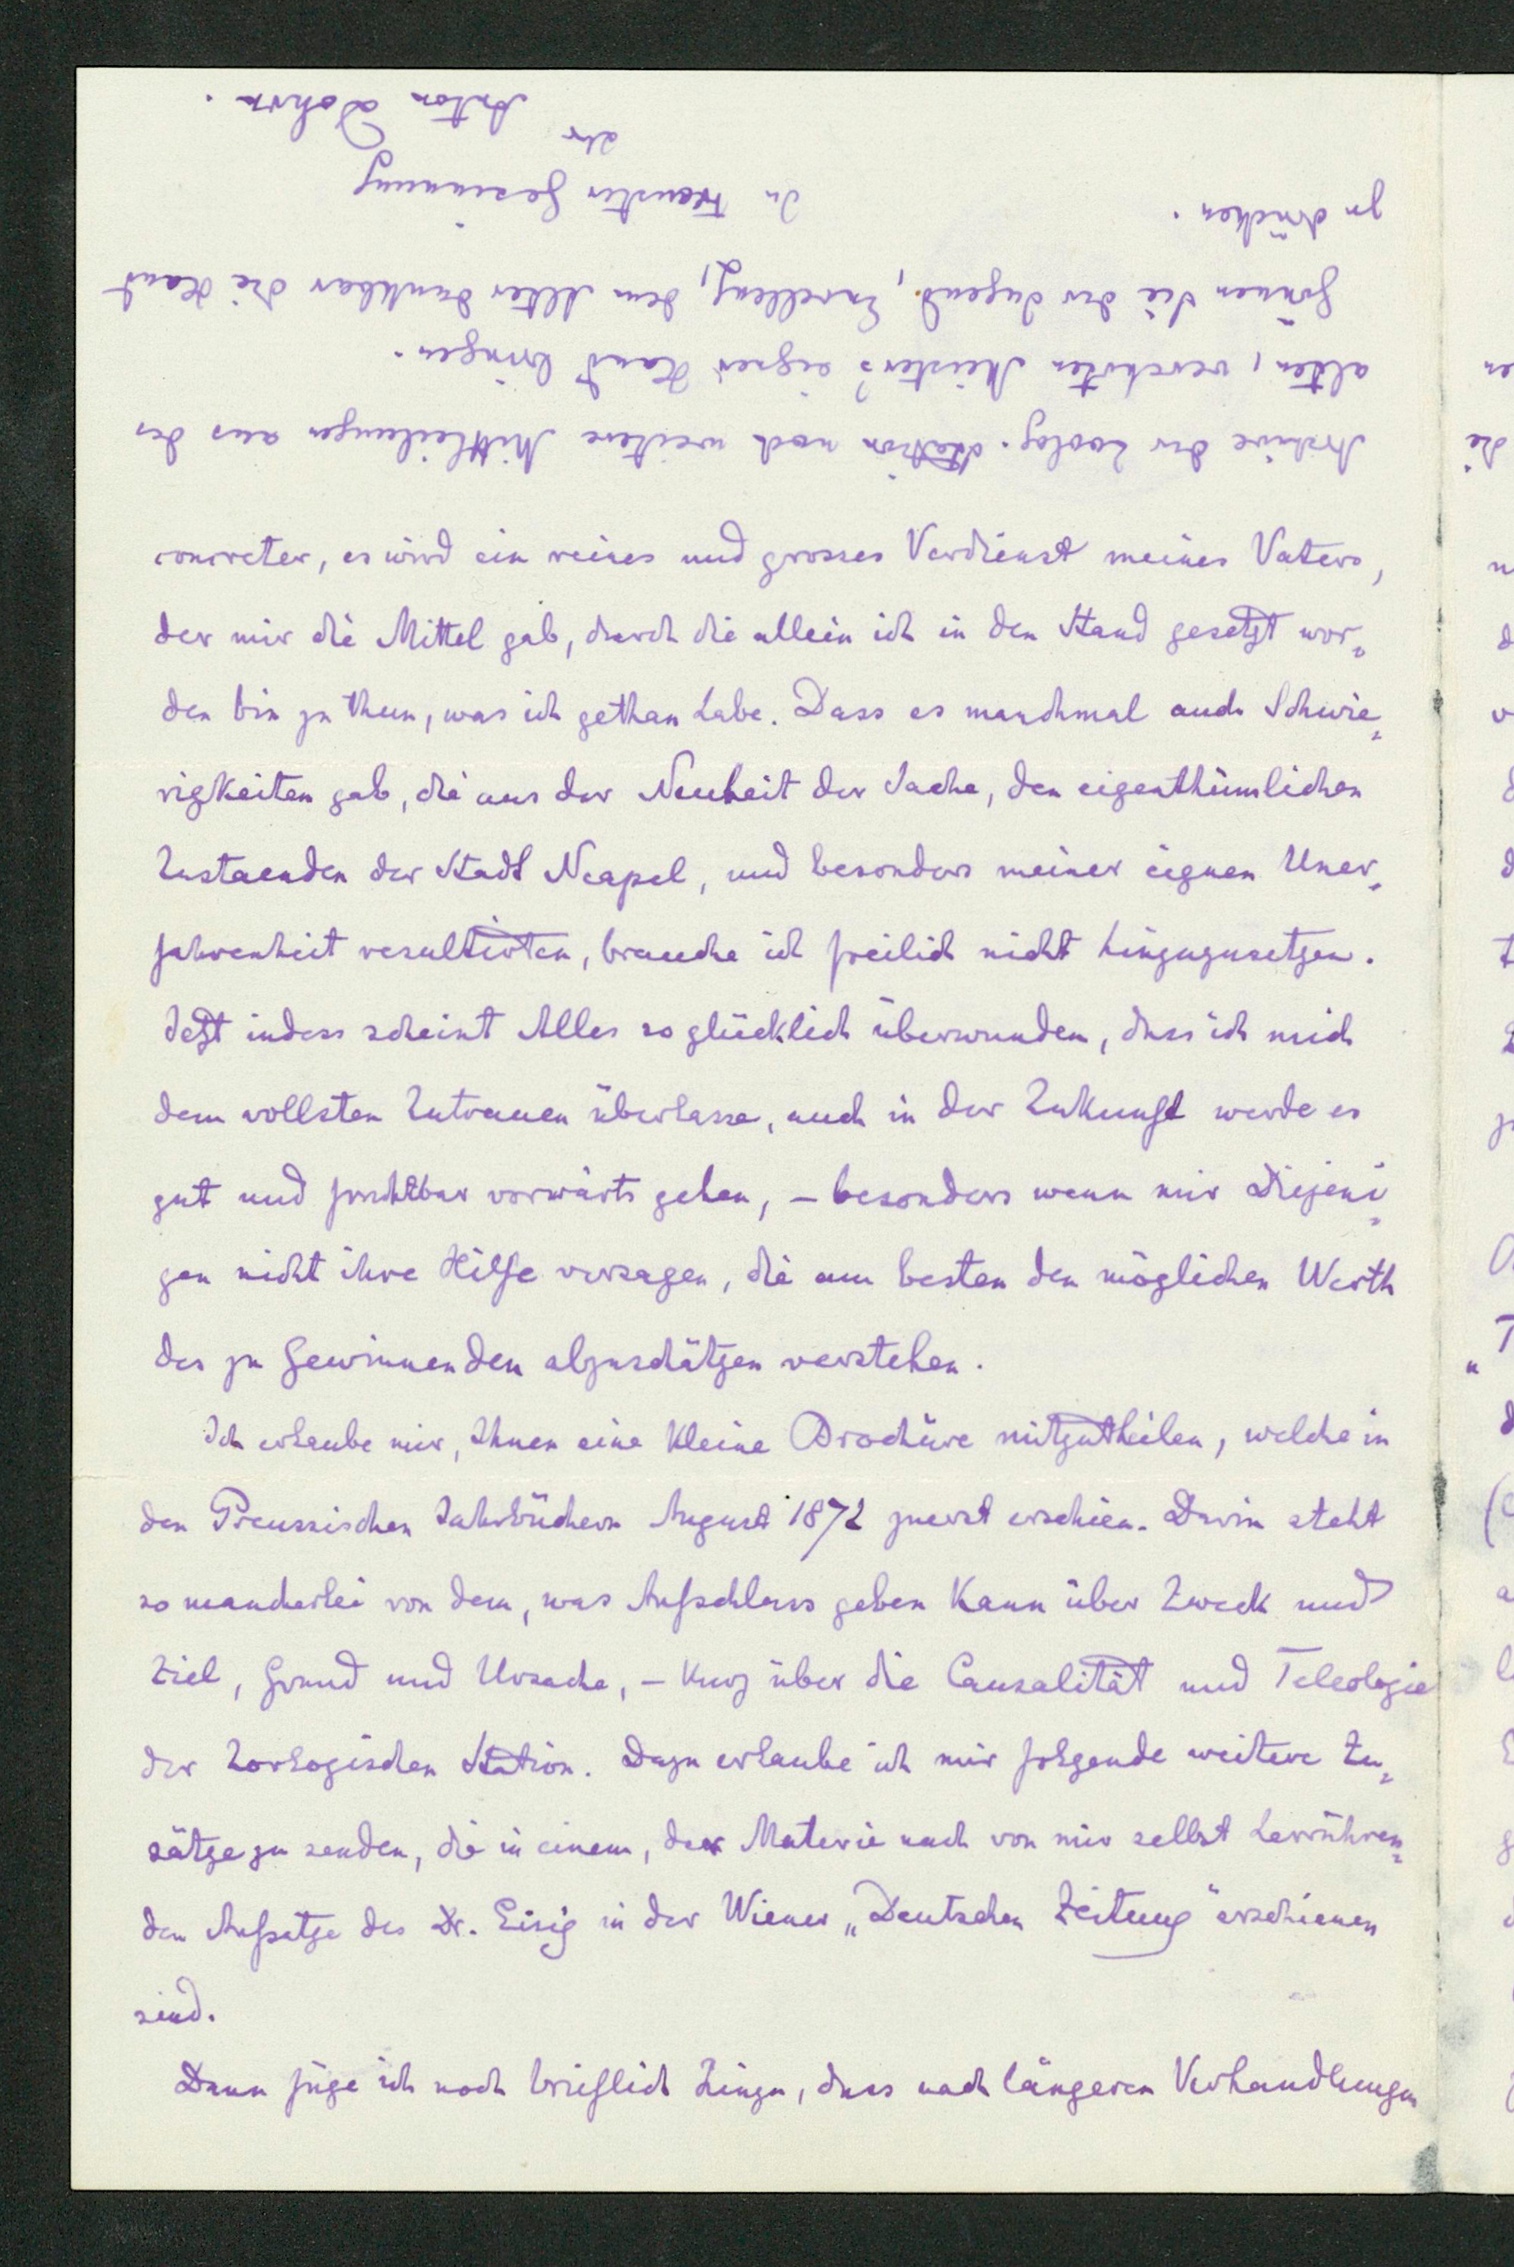 concreter, es wird ein reines und grosses Verdienst meines Vaters,
der mir die Mittel gab, durch die allein ich in den Stand gesetzt wor-
den bin zu thun, was ich gethan habe. Dass es manchmal auch Schwie-
rigkeiten gab, die aus der Neuheit der Sache, den eigenthümlichen
Zustaenden der Stadt Neapel, und besonders meiner eignen Uner-
fahrenheit resultirten, brauche ich freilich nicht hinzuzusetzen.
Jetzt indess scheint Alles so glücklich überwunden, dass ich mich
dem vollsten Zutrauen überlasse, auch in der Zukunft werde es
gut und fruchtbar vorwärts gehen, – besonders wenn mir Diejeni-
gen nicht ihre Hilfe versagen, die am besten den möglichen Werth
des zu Gewinnenden abzuschätzen verstehen.
Ich erlaube mir, Ihnen eine kleine Brochüre mitzutheilen, welche in
den Preussischen Jahrbüchern August 1872 zuerst erschien. Darin steht
so mancherlei von dem, was Aufschluss geben kann über Zweck und
Ziel, Grund und Ursache, – kurz über die Causalität und Teleologie
der Zoologischen Station. Dazu erlaube ich mir folgende weitere Zu-
sätze zu senden, die in einem, der Materie nach von mir selbst herrühren-
den Aufsatze des Dr. Eisig in der Wiener „Deutschen Zeitung" erschienen
sind.
Dann füge ich noch brieflich hinzu, dass nach längeren Verhandlungen
Archive der Zoolog. Station noch weitere Mittheilungen aus des
alten, verehrten Meisters eigner Hand bringen.
Gönnen Sie der Jugend, Excellenz, dem Alter dankbar die Hand
zu drücken.
In treuster Gesinnung
Ihr
Anton Dohrn.